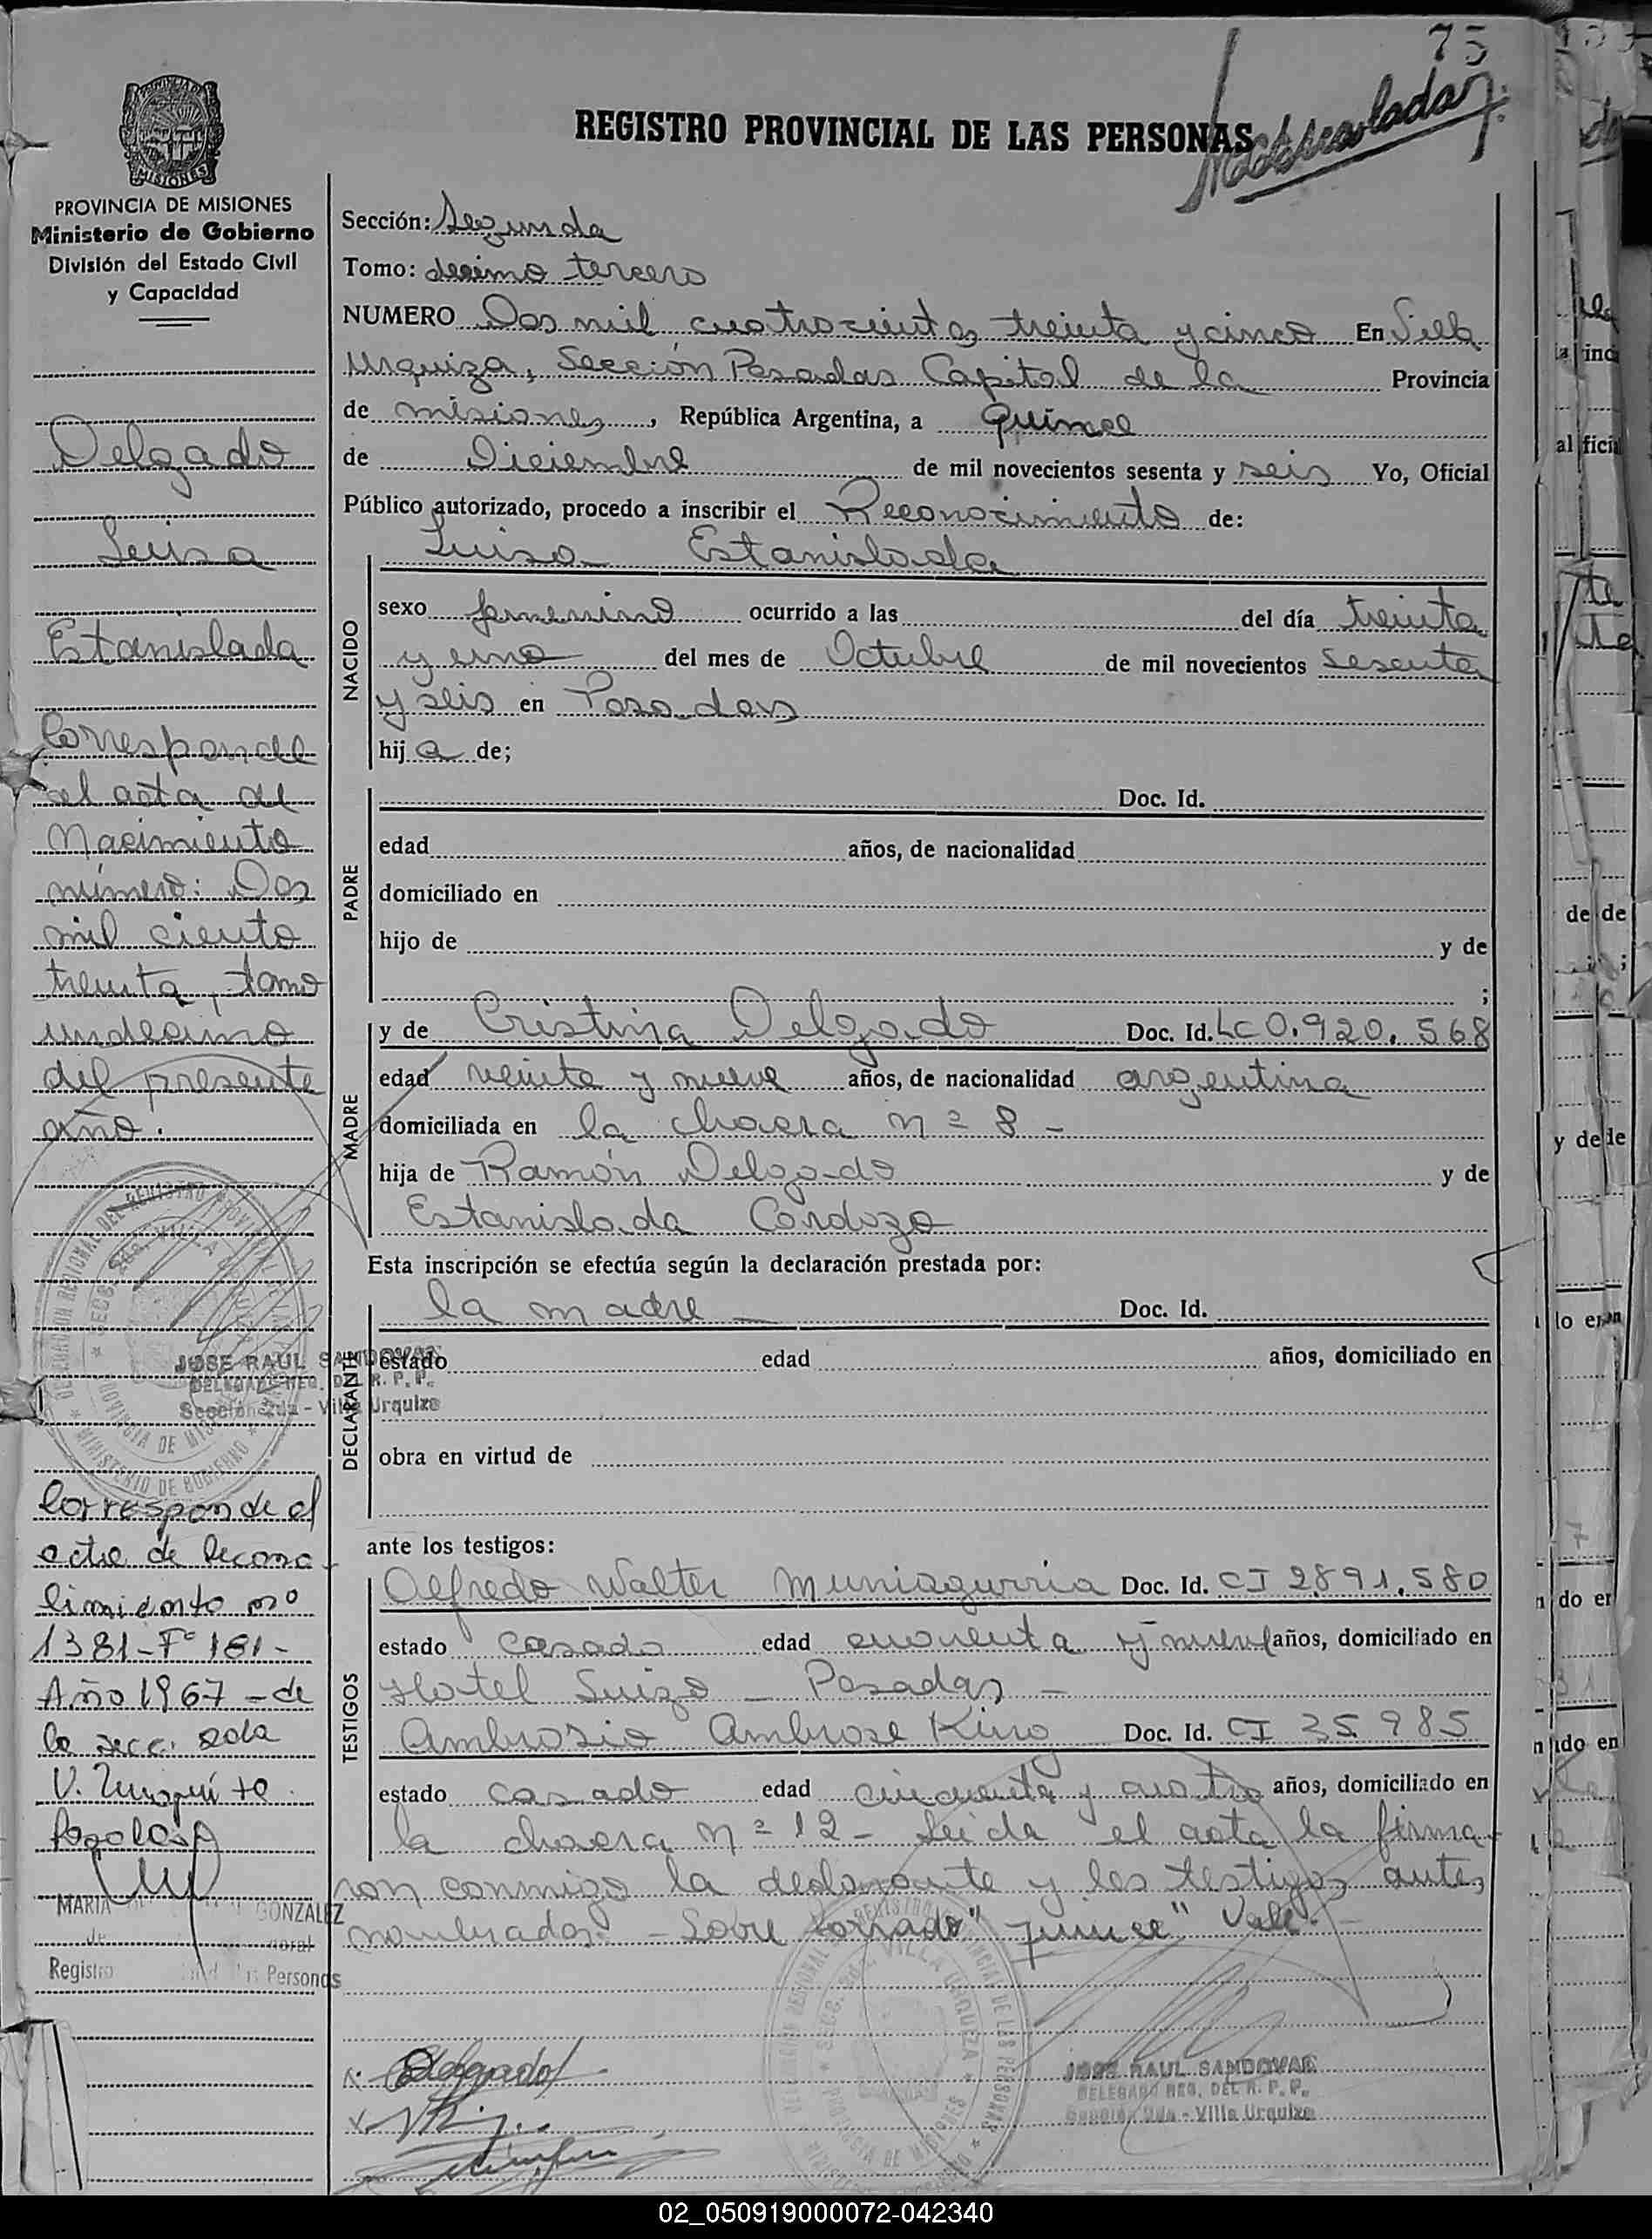 75
REGISTRO PROVINCIAL DE LAS PERSONAS
PROVINCIA DE MISIONES
Ministerio de Gobierno
División del Estado Civil
y Capacidad
Delgado
Luisa
Estanislada
Corresponde
al acta de
Nacimiento
número: Dos
mil ciento
treinta, tomo
undecimo
del presente
año.
JOSE RAUL SANDOVAL
DELEGADO REG. DEL R. P. P.
Sección 2da - Villa Urquiza
Corresponde el
acta de recono-
cimiento nº
1381-Fº 181-
Año 1967 - de
la secc. 2da
V. Urquiza
MARIA GONZALEZ
Registro de las Personas
Sección: Segunda
Tomo: decimo tercero
NUMERO Dos mil cuatrocientos treinta y cinco En Villa
Urquiza, Sección Posadas Capital de la Provincia
de misiones, República Argentina, a Quince
de Diciembre de mil novecientos sesenta y seis Yo, Oficial
Público autorizado, procedo a inscribir el Reconocimiento de:
Luisa Estanislada
NACIDO
sexo femenino ocurrido a las del día treinta
y uno del mes de Octubre de mil novecientos sesenta
y seis en Posadas
hija de;
PADRE
Doc. Id.
edad años, de nacionalidad
domiciliado en
hijo de y de
;
MADRE
y de Cristina Delgado Doc. Id. LC 0.920.568
edad veinte y nueve años, de nacionalidad argentina
domiciliada en la chacra nº 8 -
hija de Ramón Delgado y de
Estanislada Cardozo
Esta inscripción se efectúa según la declaración prestada por:
DECLARANTE
la madre - Doc. Id.
estado edad años, domiciliado en
obra en virtud de
ante los testigos:
TESTIGOS
Alfredo Walter Muniagurria Doc. Id. CI 2891.580
estado casado edad cuarenta y nueve años, domiciliado en
Hotel Suizo - Posadas -
Ambrosio Ambrose Kino Doc. Id. CI 35.985
estado casado edad cincuenta y cuatro años, domiciliado en
la chacra nº 12 - Leida el acta la firma-
ron conmigo la declarante y los testigos antes
nombrados. - Sobre borrado "quince" Vale. -
Delgado
JOSE RAUL SANDOVAL
DELEGADO REG. DEL R. P. P.
Sección 2da - Villa Urquiza
02_050919000072-042340